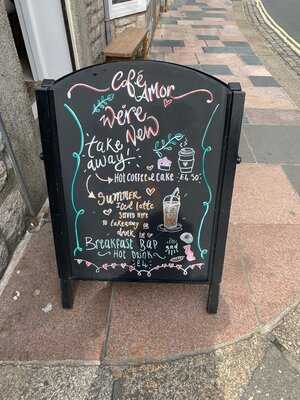 the Café Amor
We're
New
take
away!
Hot Coffee & Cake £4.50
Summer
Iced latte
Served here
to takeaway or
drink in
Breakfast Bap
Hot Drink
£4